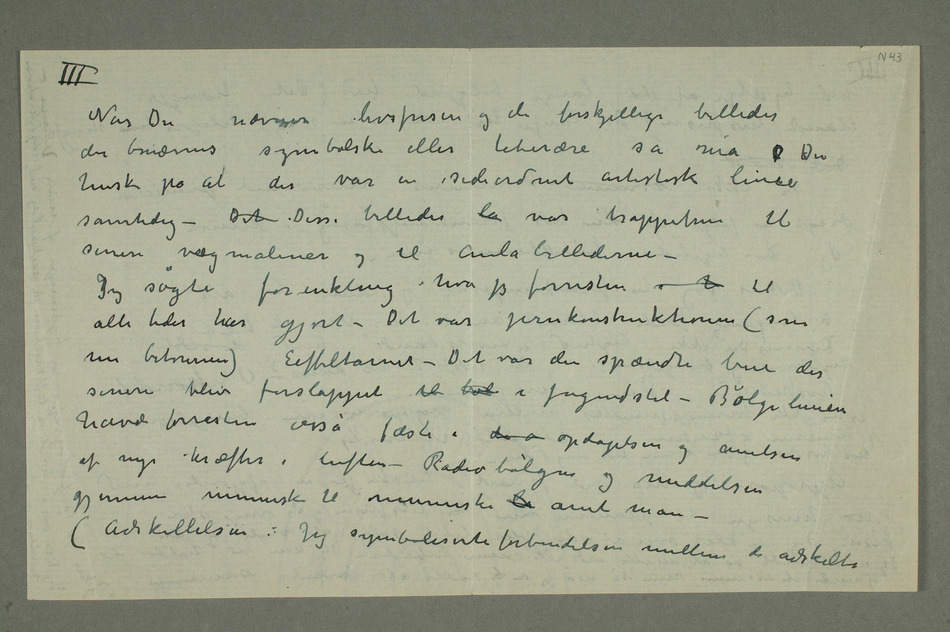 III
N 43
Når Du nævner livsfrisen og de forskjellige billeder
der benævnes symbolske eller literære så må Du
huske på at der var en sideordnet artistisk linie
samtidig – Det Disse billeder la var trappetrin til
senere vægmalerier og til Aulabillederne –
Jeg søgte forenkling hva jeg forresten til
alle tider har gjort – Det var jernkonstruktionen (som
nu betonen) Eiffeltårnet – Det var den spændte bue der
senere blev forslappet til i Jugendstil – Bölgelinien
havde forresten også fæste i opdagelsen og anelsen
af nye kræfter i luften – Radiobølgene og meddelsen
gjennem menneske til menneske ante man –
(Adskillelsen : Jeg symboliserte forbindelsen mellem de adskilte